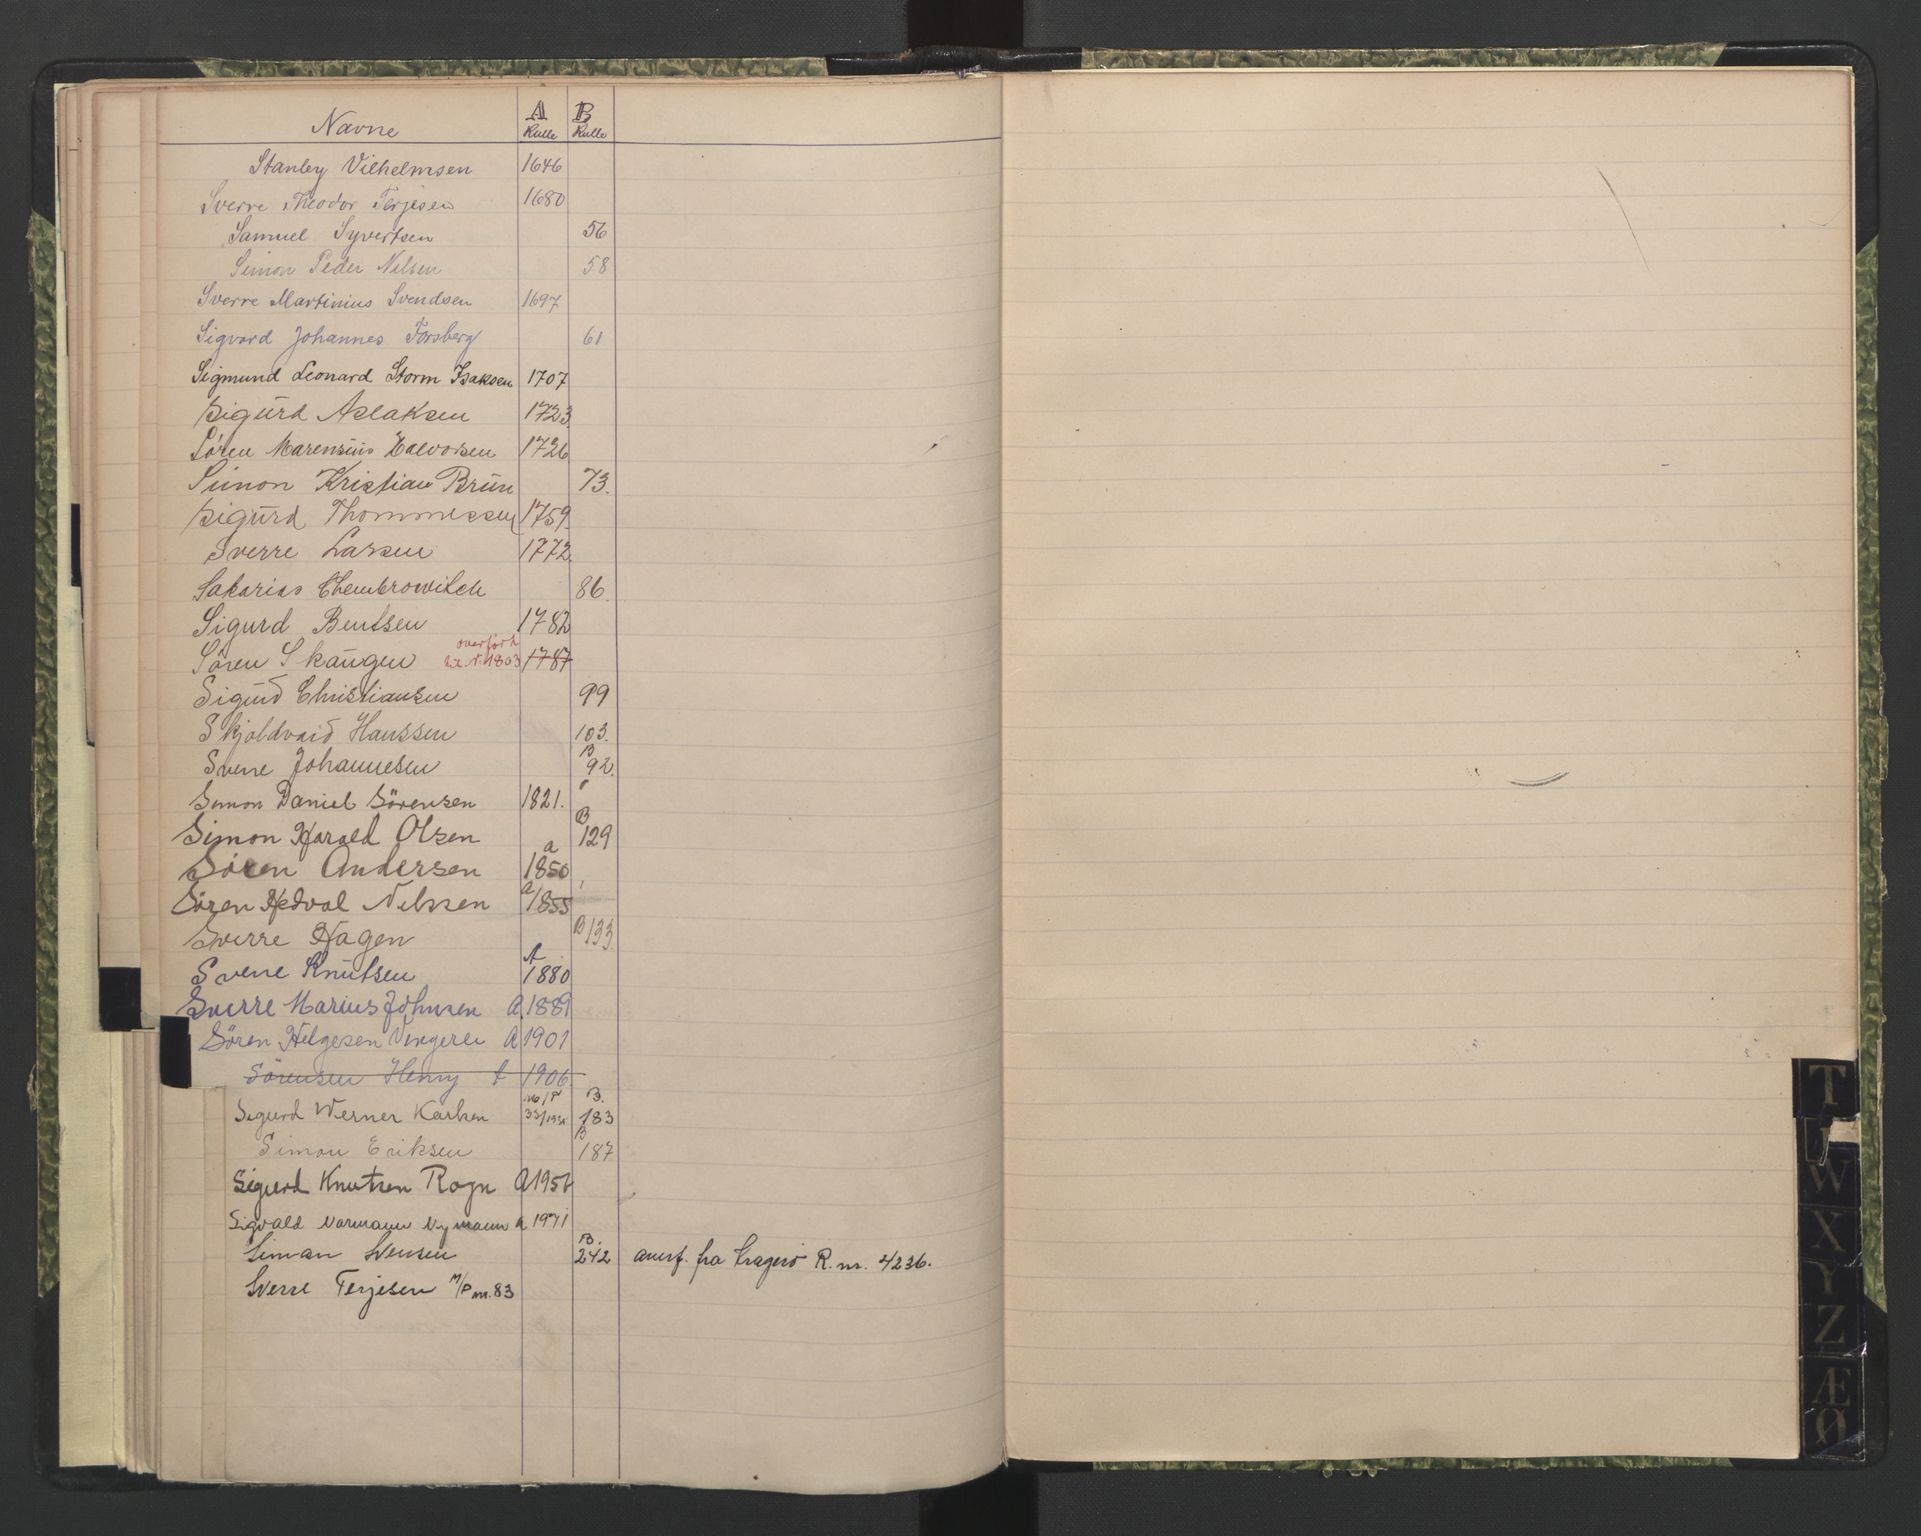 Navne A Rulle B Rulle
Stanley Vilhelmsen 1646
Sverre Theodor Terjesen 1680
Samuel Syvertsen 56
Simon Peder Nilsen 58
Sverre Martinius Svendsen 1697
Sigvard Johannes Forsberg 61
Sigmund Leonard Storm Isaksen 1707
Sigurd Aslaksen 1723
Sören Marensius Halvorsen 1726
Simon Kristian Brun 73.
Sigurd Thommessen 1759.
Sverre Larsen 1772
Sakarias Chembrowitch 86.
Sigurd Bentsen 1782
overført
Sören Skaugen til N. 1803 1787
Sigurd Christiansen 99
Skjoldvard Hanssen 103.
Sverre Johannesen B 92.
Simon Daniel Sörensen 1821.
Simon Harald Olsen B 129
Sören Andersen a 1850
Sören Hedval Nilssen a 1855
Sverre Hagen B 133
Sverre Knutsen A 1880
Sverre Marius Johnsen A 1889
Sören Helgesen Vengerei A 1901
Sörensen Henry A 1906
Sigurd Werner Karlsen B. 183
Simon Eriksen B 187
Sigurd Knutsen Rogn A 1956
Sigvald Normann Nymann A 1971
Siman Svensen B. 242 overf. fra Kragerö R. nr. 4236.
Sverre Terjesen M/P nr. 83
T
W
X
Y
Z
Æ
Ø